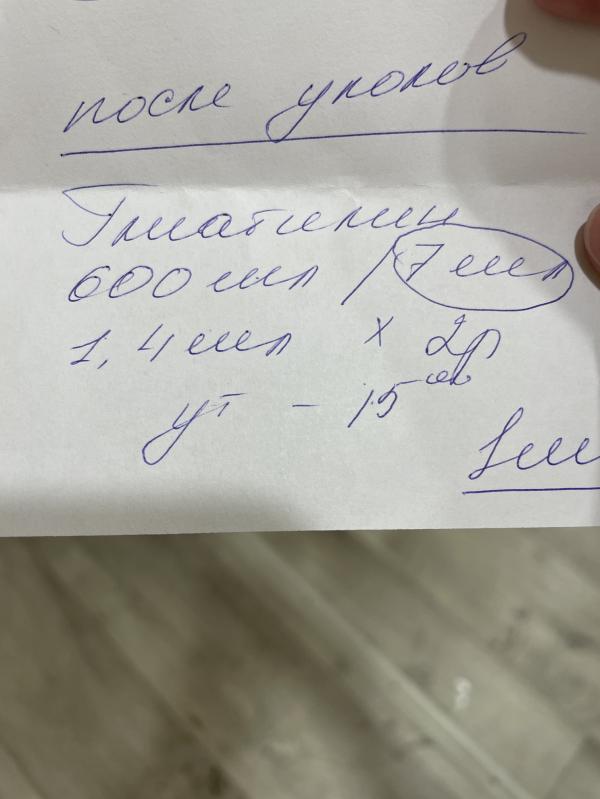 после уколов
Глиатилин
600 мл / 7 мл
1,4 мл х 2р
ут - 15 00
1 м